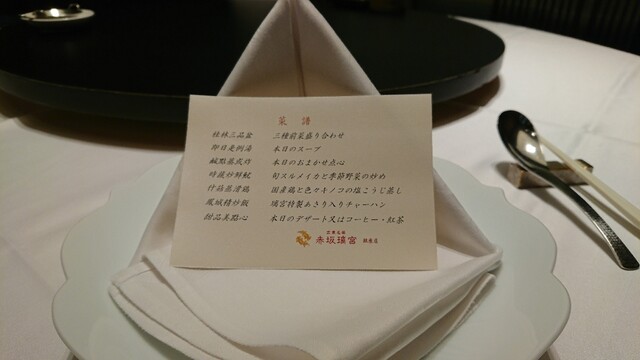 菜譜
桂林三品盆 三種前菜盛り合わせ
即日是例湯 本日のスープ
鹹點蒸或炸 本日のおまかせ点心
時蔬炒鮮魷 旬スルメイカと季節野菜の炒め
什菇蒸滑鶏 国産鶏と色々キノコの塩こうじ蒸し
鳳城精炒飯 璃宮特製あさり入りチャーハン
甜品美點心 本日のデザート又はコーヒー・紅茶
広東名菜
赤坂璃宮 銀座店